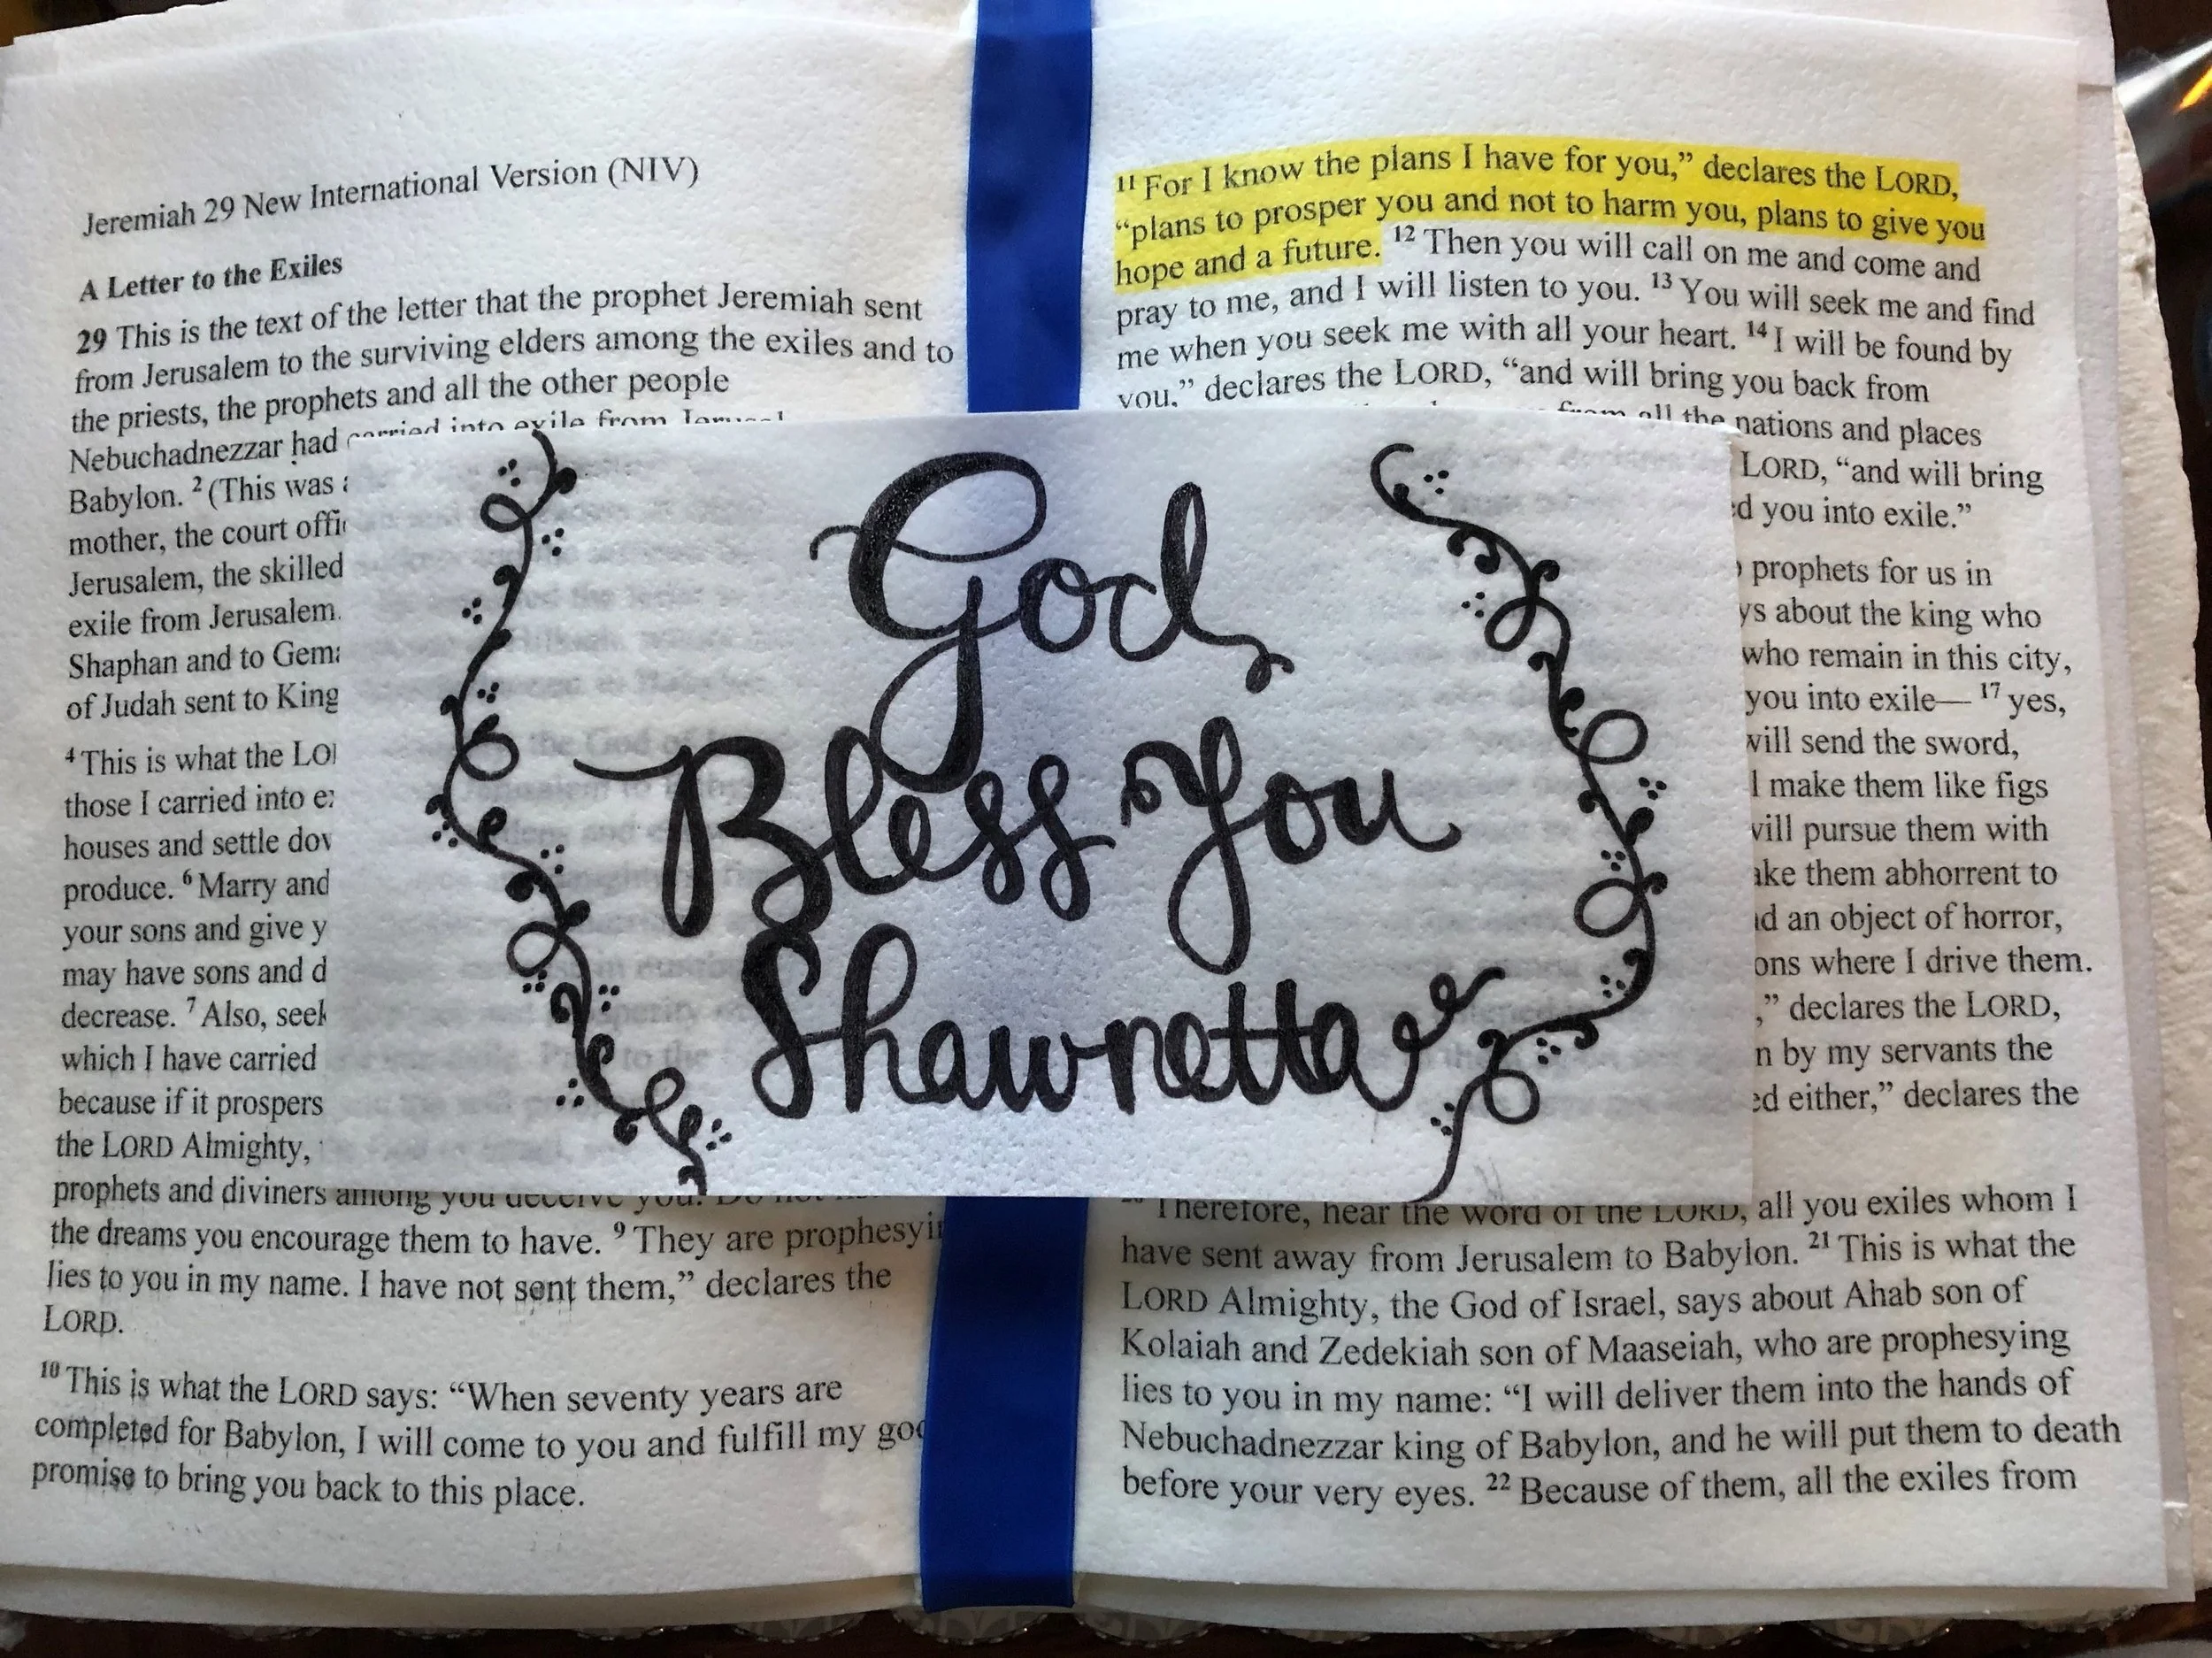 Jeremiah 29 New International Version (NIV)
A Letter to the Exiles
29 This is the text of the letter that the prophet Jeremiah sent
from Jerusalem to the surviving elders among the exiles and to
the priests, the prophets and all the other people
Nebuchadnezzar had carried into exile from
Babylon. 2 (This was
mother, the court
Jerusalem, the skilled
exile from Jerusalem.
Shaphan and to
of Judah sent to King
4 This is what the
those I carried into
houses and settle
produce. 6 Marry and
your sons and give
may have sons and
decrease. 7 Also,
which I have carried
because if it prospers
the LORD Almighty,
prophets and diviners among you deceive you. Do not
the dreams you encourage them to have. 9 They are
lies to you in my name. I have not sent them,” declares the
LORD.
10 This is what the LORD says: “When seventy years are
completed for Babylon, I will come to you and fulfill my
promise to bring you back to this place.
God
Bless You
Shawnetta
11 For I know the plans I have for you,” declares the LORD,
“plans to prosper you and not to harm you, plans to give you
hope and a future. 12 Then you will call on me and come and
pray to me, and I will listen to you. 13 You will seek me and find
me when you seek me with all your heart. 14 I will be found by
you,” declares the LORD, “and will bring you back from
from all the nations and places
LORD, “and will bring
you into exile.”
prophets for us in
about the king who
who remain in this city,
you into exile— 17 yes,
will send the sword,
make them like figs
will pursue them with
them abhorrent to
an object of horror,
where I drive them.
” declares the LORD,
by my servants the
either,” declares the
Therefore, hear the word of the LORD, all you exiles whom I
have sent away from Jerusalem to Babylon. 21 This is what the
LORD Almighty, the God of Israel, says about Ahab son of
Kolaiah and Zedekiah son of Maaseiah, who are prophesying
lies to you in my name: “I will deliver them into the hands of
Nebuchadnezzar king of Babylon, and he will put them to death
before your very eyes. 22 Because of them, all the exiles from